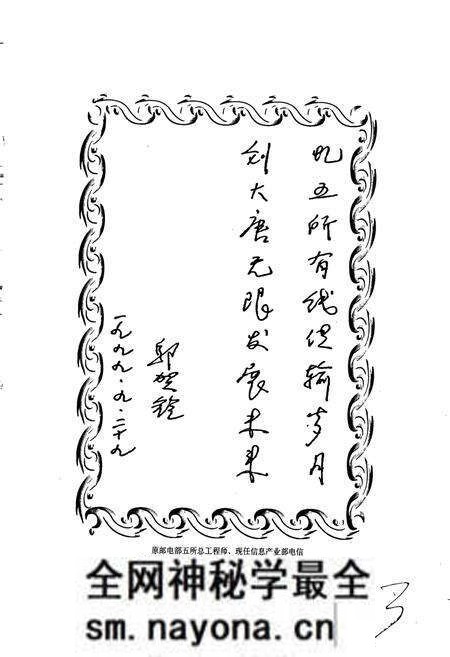 忆五所有线传输岁月
创大唐无限发展未来
邬贺铨
一九九九.九.二十九
原邮电部五所总工程师、现任信息产业部电信
全网神秘学最全
sm.nayona.cn